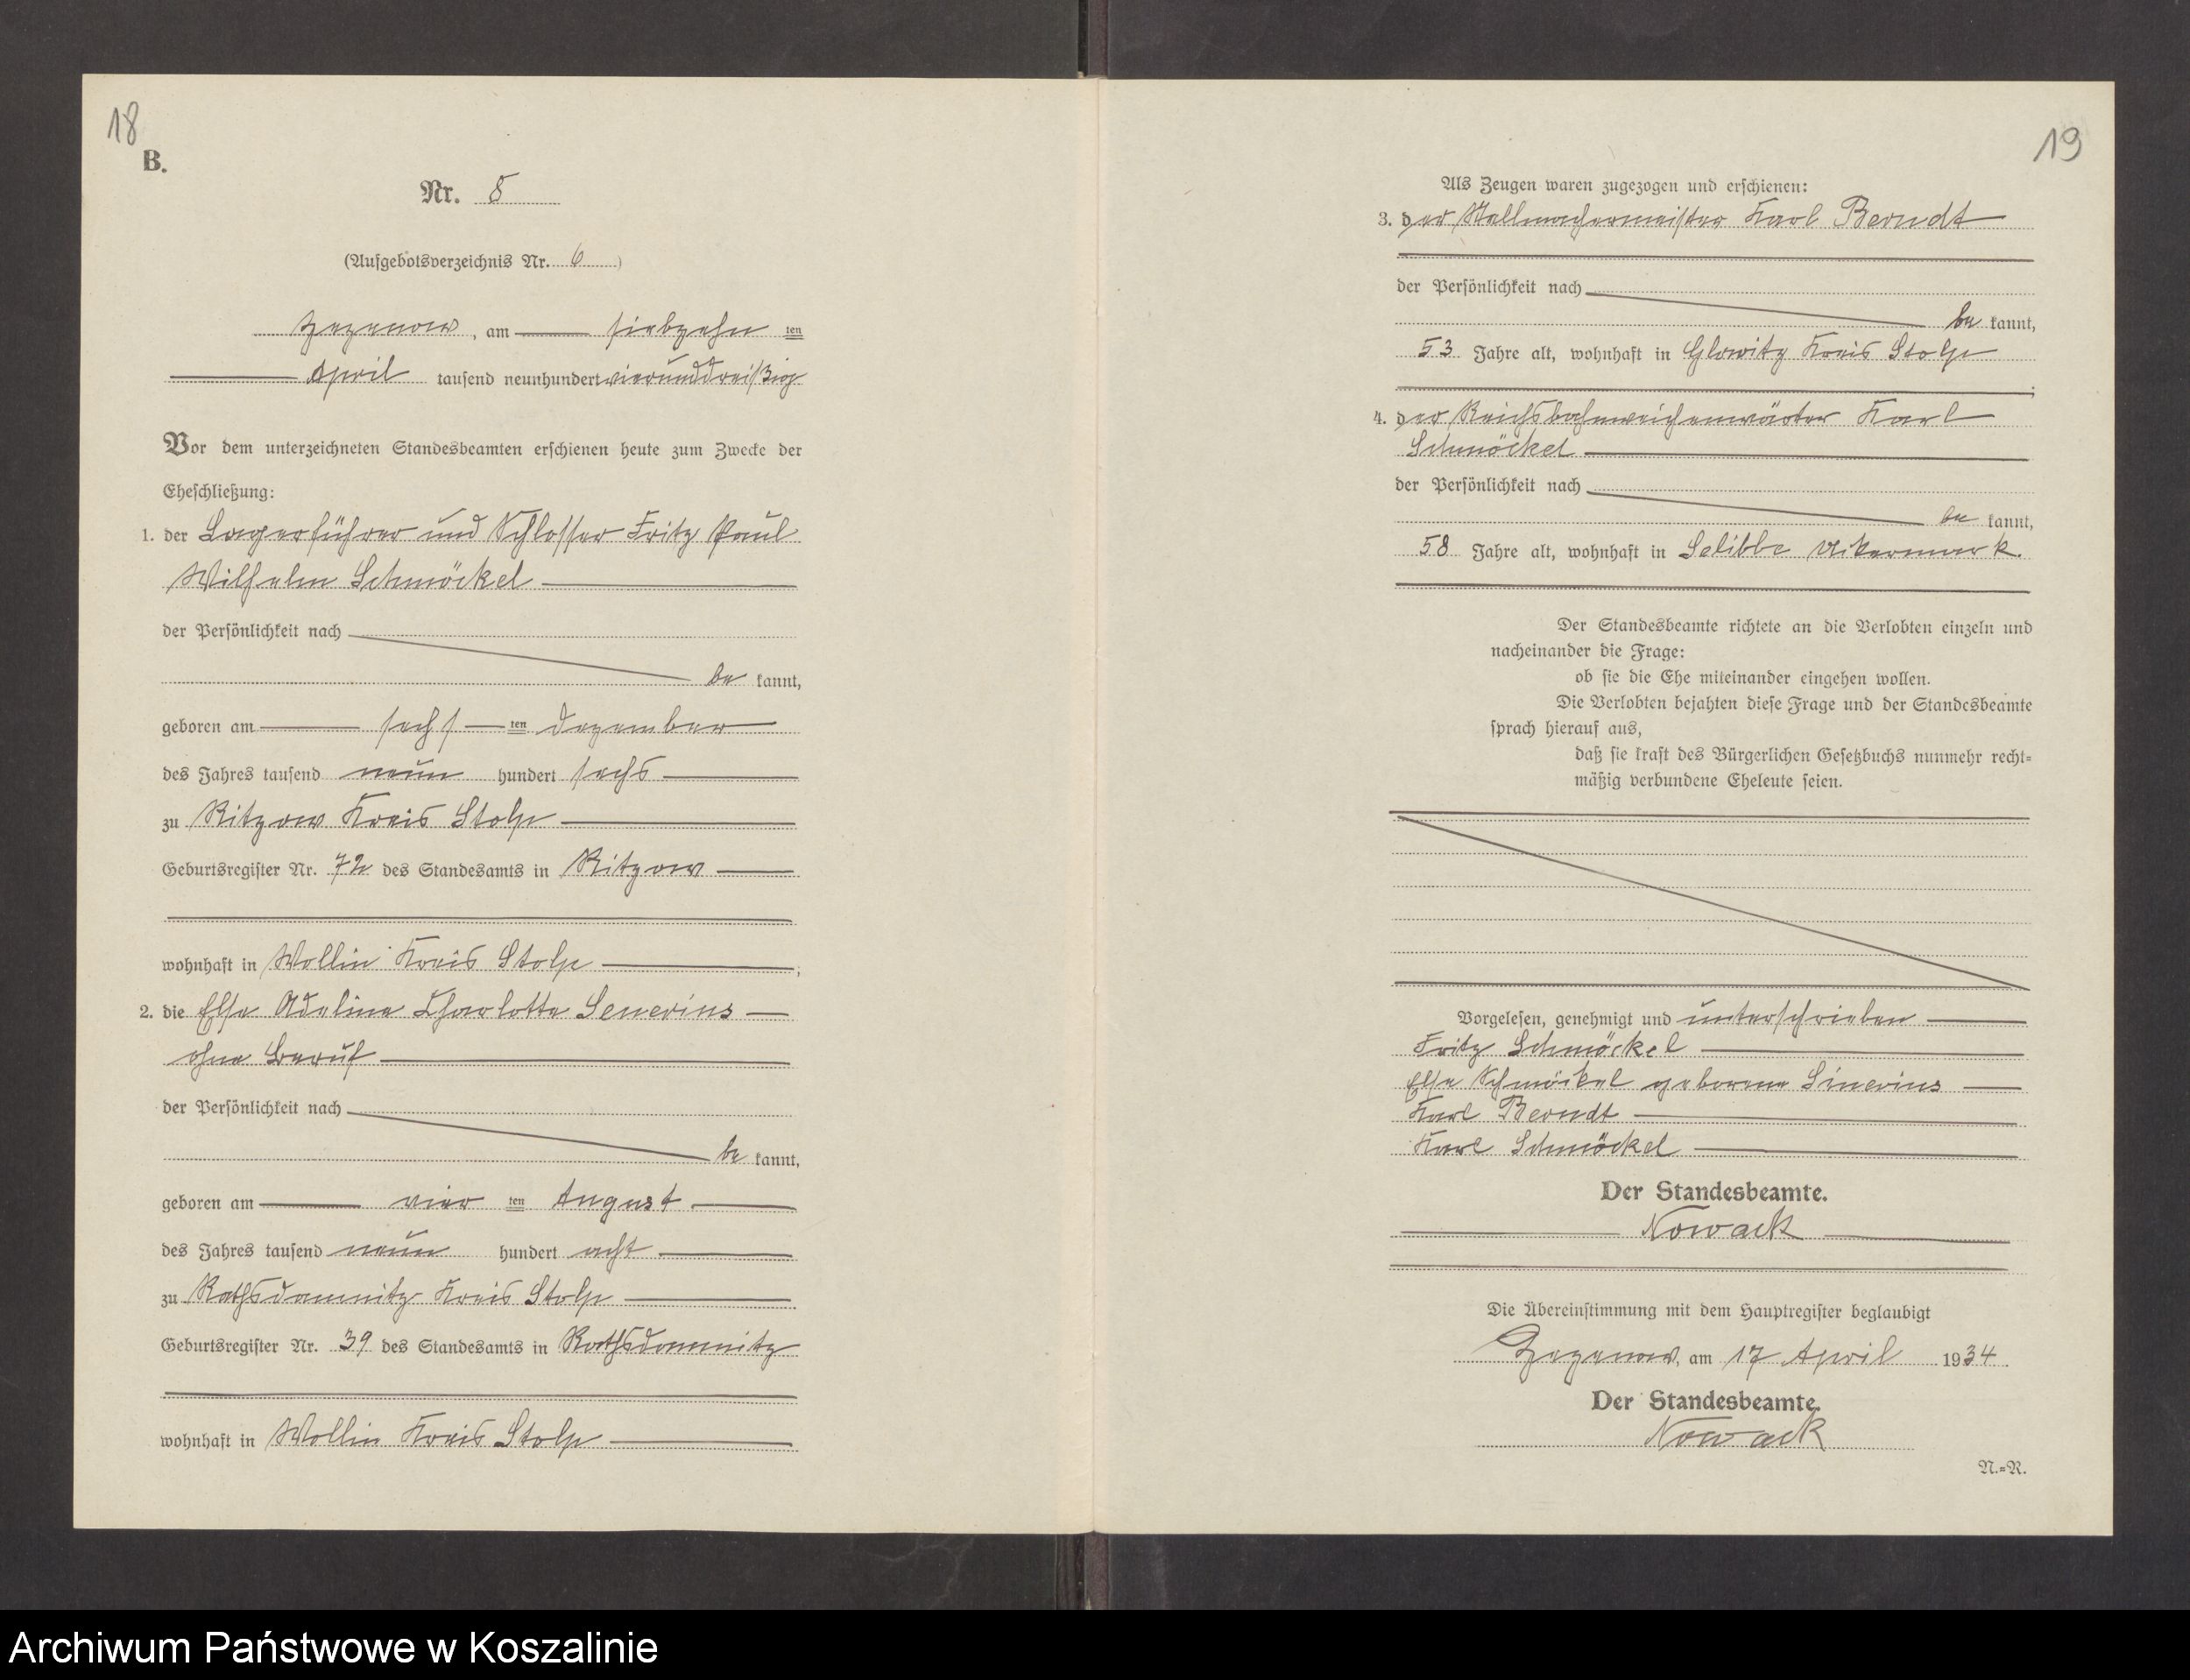 18
B.
Nr. 8
(Aufgebotsverzeichnis Nr. 6)
Zezenow, am siebzehn ten
April tausend neunhundert vierunddreißig
Vor dem unterzeichneten Standesbeamten erschienen heute zum Zwecke der
Eheschließung:
1. der Lagerführer und Schlosser Fritz Paul
Wilhelm Schmöckel
der Persönlichkeit nach
be kannt,
geboren am sechs ten Dezember
des Jahres tausend neun hundert sechs
zu Ritzow Kreis Stolp
Geburtsregister Nr. 72 des Standesamts in Ritzow
wohnhaft in Wollin Kreis Stolp ;
2. die Else Adeline Charlotte
ohne Beruf
der Persönlichkeit nach
be kannt,
geboren am vier ten August
des Jahres tausend neun hundert acht
zu Rathsdamnitz Kreis Stolp
Geburtsregister Nr. 39 des Standesamts in Rathsdamnitz
wohnhaft in Wollin Kreis Stolp
19
Als Zeugen waren zugezogen und erschienen:
3. der Stellmachermeister Karl Berndt
der Persönlichkeit nach
be kannt,
53 Jahre alt, wohnhaft in Glowitz Kreis Stolp
;
4. der Reichsbahnweichenwärter Karl
Schmöckel
der Persönlichkeit nach
be kannt,
58 Jahre alt, wohnhaft in
Der Standesbeamte richtete an die Verlobten einzeln und
nacheinander die Frage:
ob sie die Ehe miteinander eingehen wollen.
Die Verlobten bejahten diese Frage und der Standesbeamte
sprach hierauf aus,
daß sie kraft des Bürgerlichen Gesetzbuchs nunmehr recht-
mäßig verbundene Eheleute seien.
Vorgelesen, genehmigt und unterschrieben
Fritz Schmöckel
Else Schmöckel geborene
Karl Berndt
Karl Schmöckel
Der Standesbeamte.
Nowack
Die Übereinstimmung mit dem Hauptregister beglaubigt
Zezenow, am 17 April 1934.
Der Standesbeamte.
Nowack
N.-R.
Archiwum Państwowe w Koszalinie